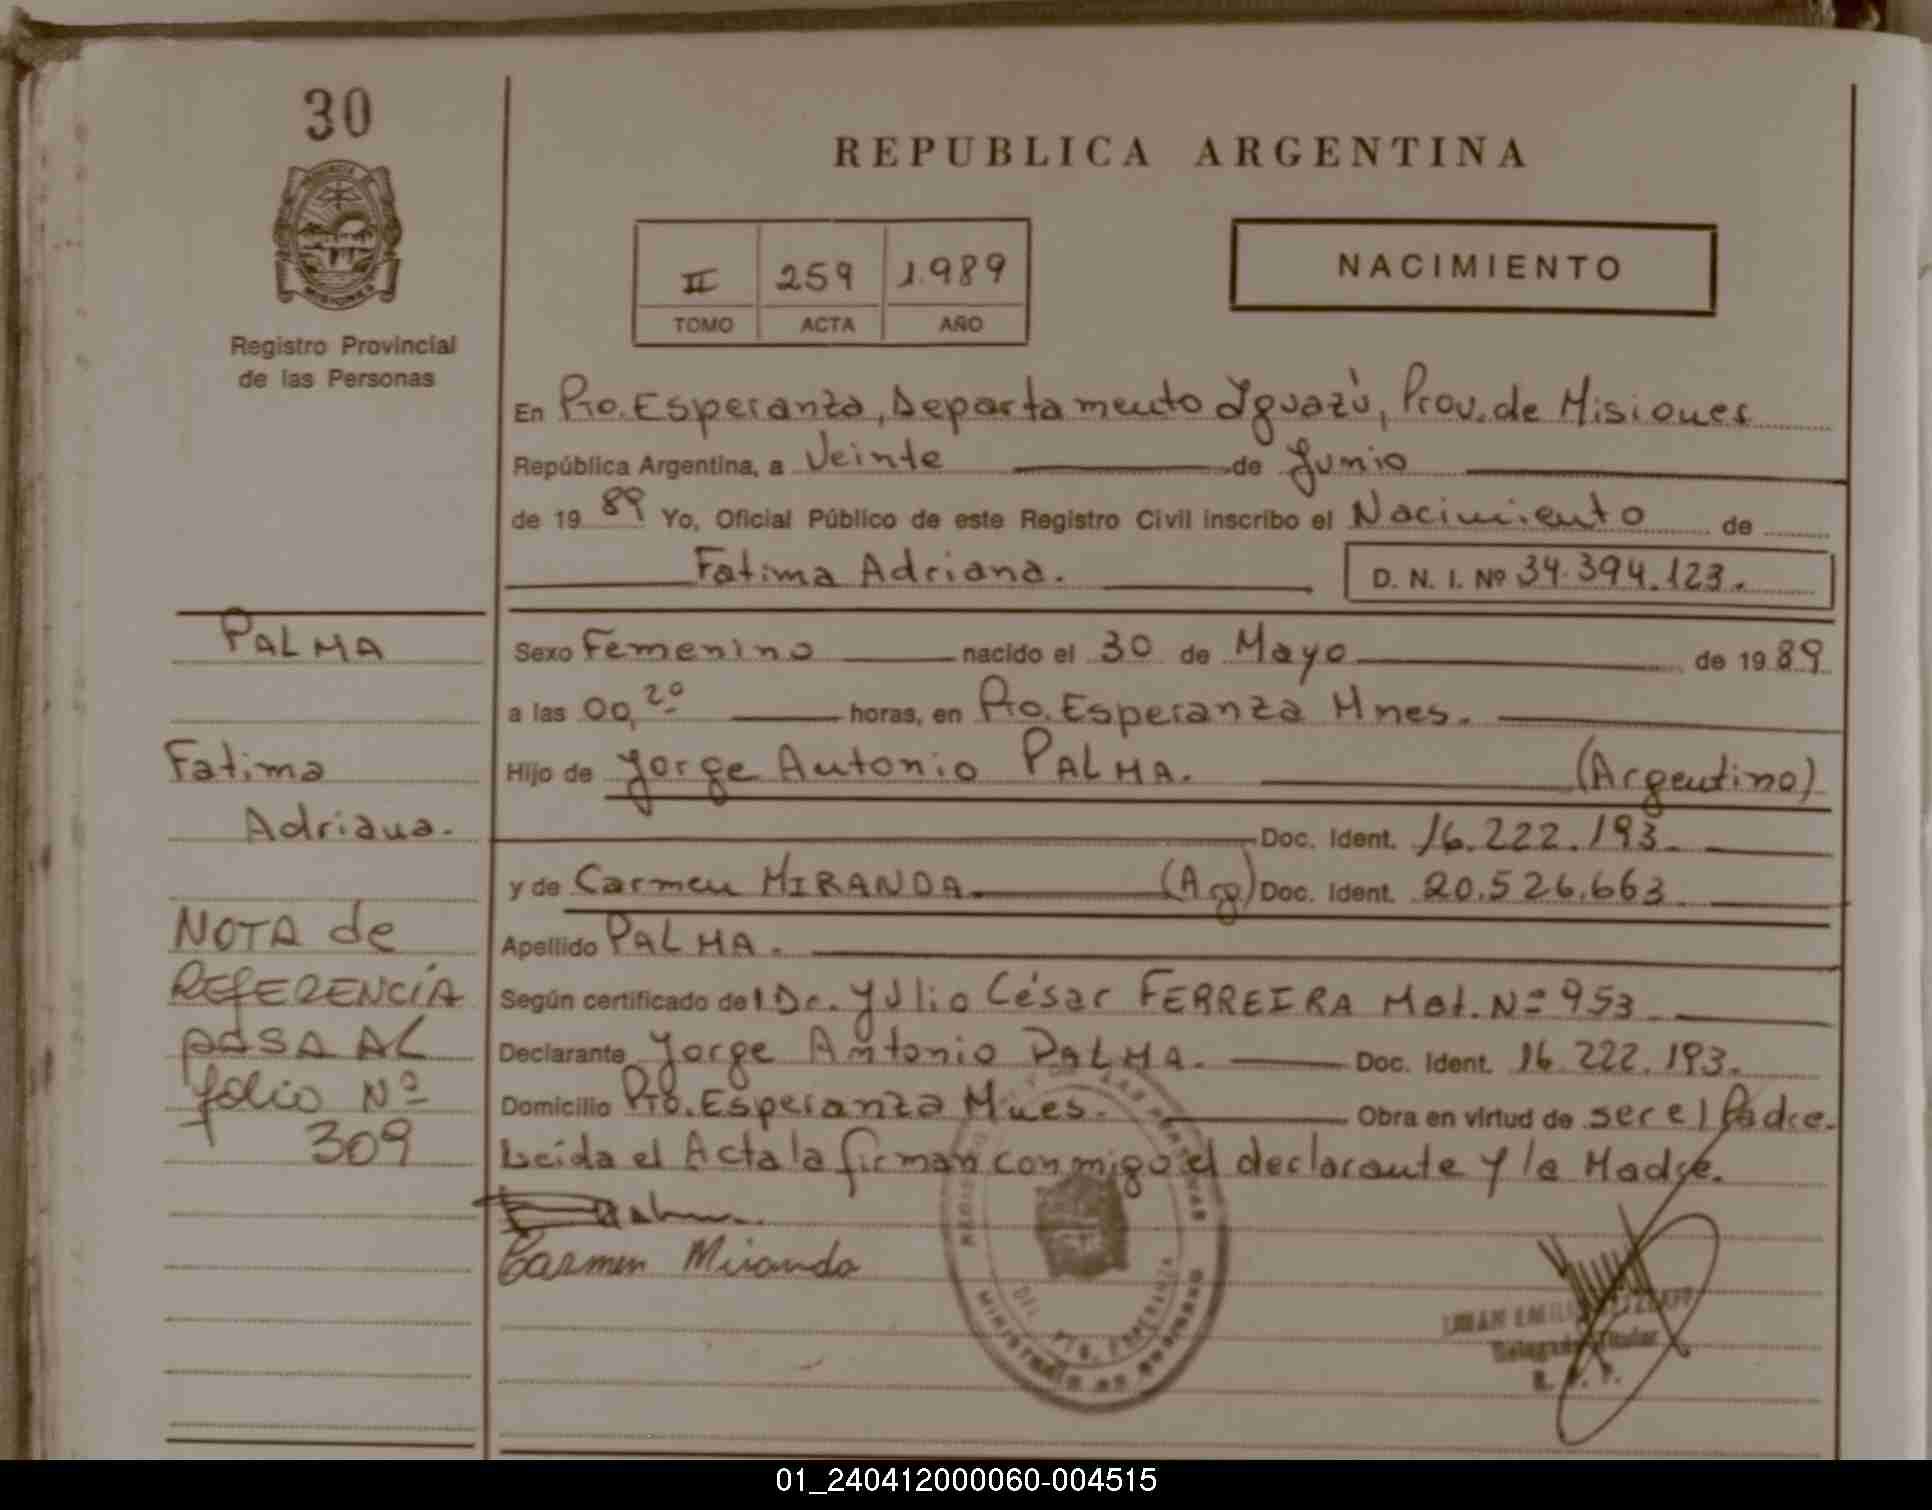 30
MISIONES
Registro Provincial
de las Personas
REPUBLICA ARGENTINA
II 259 1.989
TOMO ACTA AÑO
NACIMIENTO
En Pto. Esperanza, Departamento Yguazú, Prov. de Misiones
República Argentina, a Veinte de Junio
de 19 89 Yo, Oficial Público de este Registro Civil inscribo el Nacimiento de
Fatima Adriana.
D. N. I. Nº 34.394.123.
PALMA
Fatima
Adriana.
NOTA de
REFERENCIA
pasa AL
folio Nº
309
Sexo Femenino nacido el 30 de Mayo de 19 89
a las 00,20 horas, en Pto. Esperanza Mnes.
Hijo de Jorge Antonio PALMA. (Argentino)
Doc. Ident. 16.222.193.
y de Carmen MIRANDA. (Arg) Doc. Ident. 20.526.663
Apellido PALMA.
Según certificado del Dr. Yulio César FERREIRA Mat. Nº 953
Declarante Jorge Antonio PALMA. Doc. Ident. 16.222.193.
Domicilio Pto. Esperanza Mnes. Obra en virtud de ser el Padre.
Leída el Acta la firman conmigo el declarante y la Madre.
Carmen Miranda
DEL PTO. ESPERANZA
MINISTERIO DE GOBIERNO
Delegado Titular
R. P. P.
01_240412000060-004515